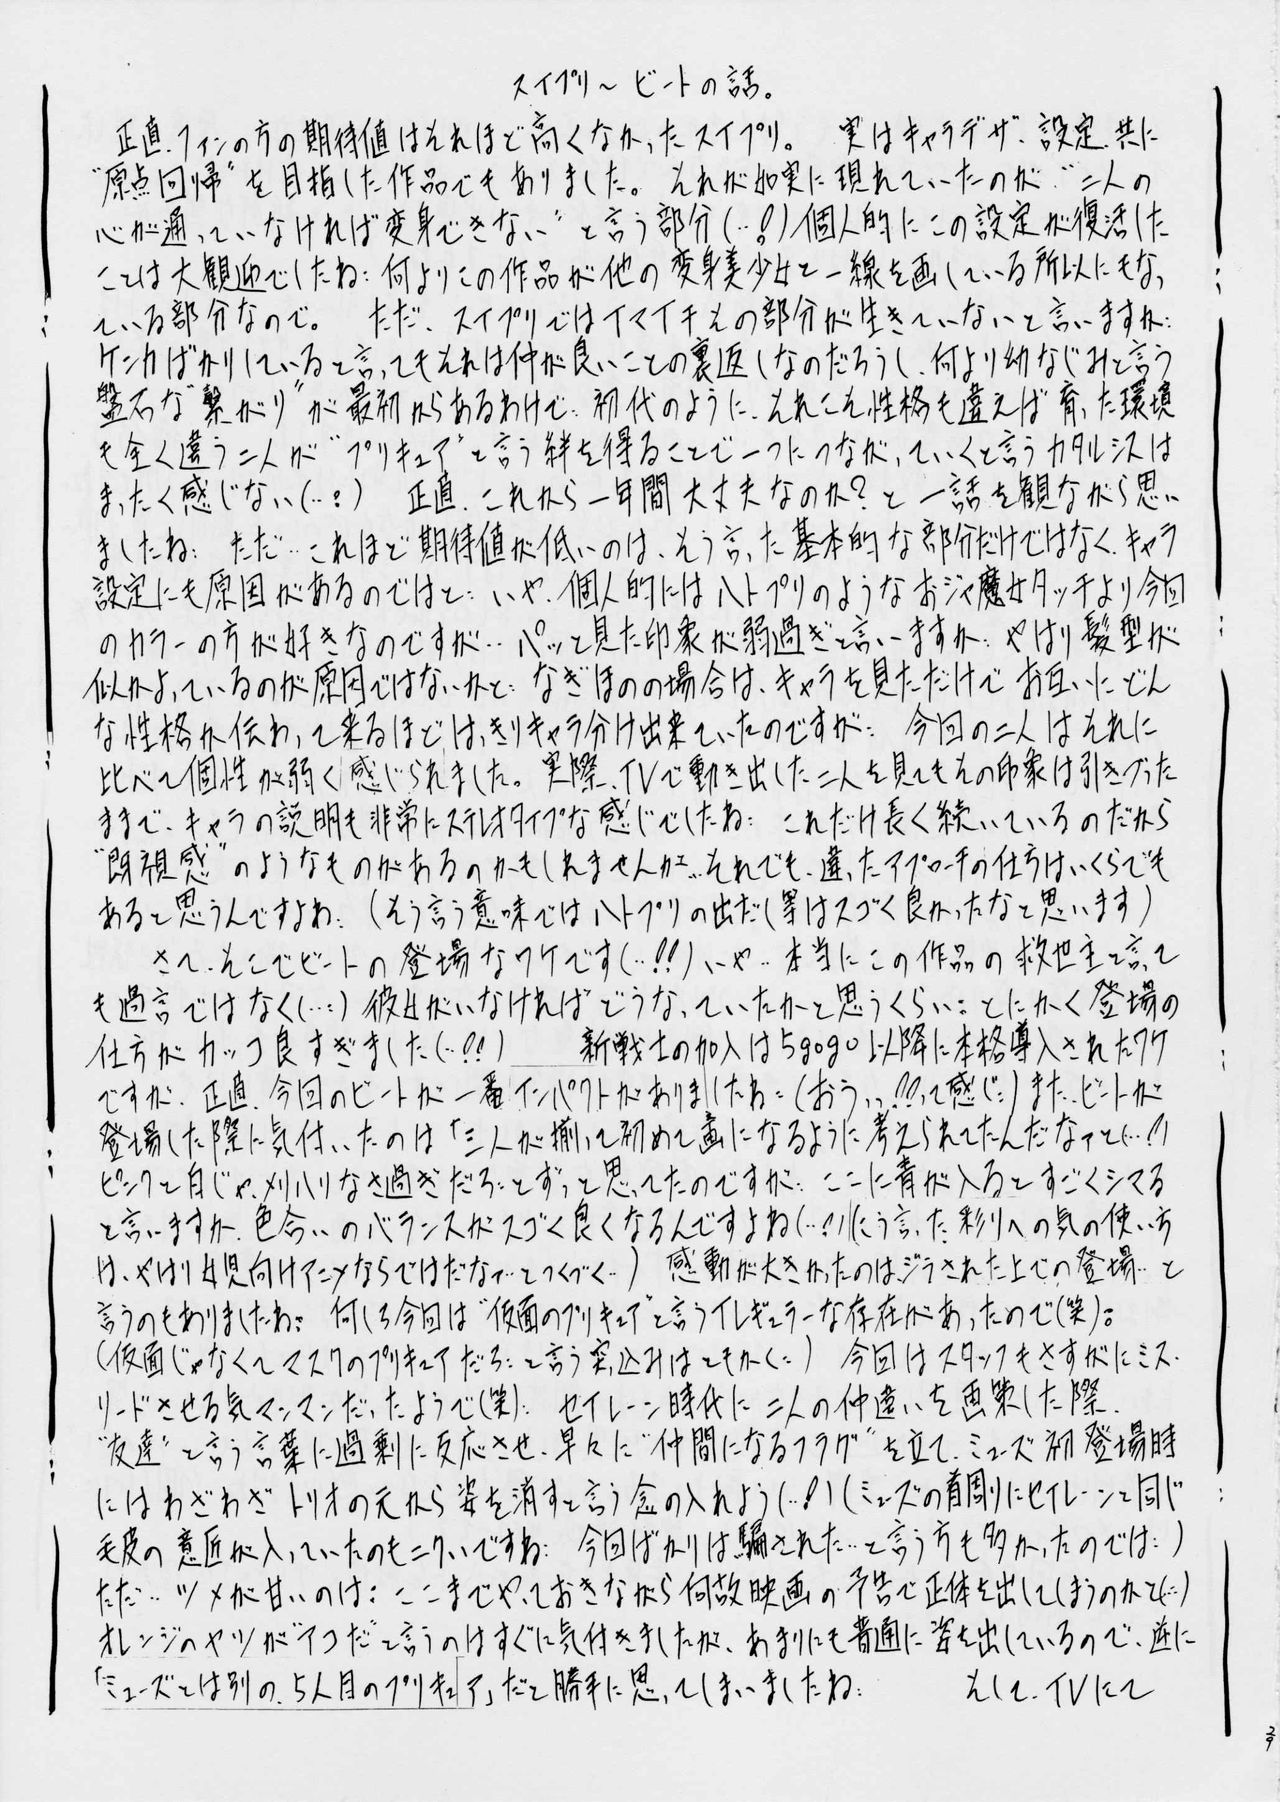 スイプリ～ビートの話。
正直、ファンの方の期待値はそれほど高くなかったスイプリ。 実はキャラデザ、設定、共に
"原点回帰"を目指した作品でもありました。 それが如実に現れていたのが、"二人の
心が通っていなければ変身できない"と言う部分(…!)個人的にこの設定が復活した
ことは大観迎でしたね… 何よりこの作品が他の変身美少女と一線を画している所以にもなっ
ている部分なので。 ただ、スイプリではイマイチその部分が生きていないと言いますか…
ケンカばかりしていると言ってもそれは仲が良いことの裏返しなのだろうし、何より幼なじみと言う
盤石な"繋がり"が最初からあるわけで… 初代のように、それこそ性格も違えば育った環境
も全く違う二人が"プリキュア"と言う絆を得ることで一つにつながっていくと言うカタルシスは
まったく感じない(…!) 正直、これから一年間大丈夫なのか？と一話を観ながら思い
ましたね… ただ…これほど期待値が低いのは、そう言った基本的な部分だけではなく、キャラ
設定にも原因があるのではと… いや、個人的にはハトプリのようなおジャ魔女タッチより今回
のカラーの方が好きなのですが… パッと見た印象が弱過ぎと言いますか… やはり髪型が
似かよっているのが原因ではないかと… なぎほのの場合は、キャラを見ただけでお互いにどん
な性格か伝わって来るほどはっきりキャラ分け出来ていたのですが… 今回の二人はそれに
比べて個性が弱く感じられました。実際、TVで動き出した二人を見てもその印象は引きづった
ままで、キャラの説明も非常にステレオタイプな感じでしたね… これだけ長く続いているのだから
"既視感"のようなものがあるのかもしれませんが…それでも、違ったアプローチの仕方はいくらでも
あると思うんですよね…(そう言う意味ではハトプリの出だし等はスゴく良かったなと思います)
さて、そこでビートの登場なワケです(…!!)いや…本当にこの作品の救世主と言って
も過言ではなく(…)彼女がいなければどうなっていたかと思うくらい… とにかく登場の
仕方がカッコ良すぎました(…!!) 新戦士の加入は5gogo以降に本格導入されたワケ
ですが、正直、今回のビートが一番インパクトがありましたね…(おうっっ!!?って感じ…)また、ビートが
登場した際に気付いたのは「三人が揃って初めて画になるように考えられてたんだなァと(…!)
ピンクと白じゃ、メリハリなさ過ぎだろ…とずっと思ってたのですが… ここに青が入るとすごくシマる
と言いますか、色合いのバランスがスゴく良くなるんですよね(…!)(こう言った彩りへの気の使い方
は、やはり女児向けアニメならではだなァ…とつくづく…) 感動が大きかったのは、ジラされた上での登場…と
言うのもありましたね… 何しろ今回は"仮面のプリキュア"と言うイレギュラーな存在があったので(笑)…
(仮面じゃなくてマスクのプリキュアだろ…と言う突っ込みはともかく…) 今回はスタッフもさすがにミス・
リードさせる気マンマンだったようで(笑)… セイレーン時代に二人の仲違いを画策した際、
"友達"と言う言葉に過剰に反応させ、早々に"仲間になるフラグ"を立て、ミューズ初登場時
にはわざわざトリオの元から姿を消すと言う念の入れよう(…!)(ミューズの首周りにセイレーンと同じ
毛皮の意匠が入っていたのもニクいですね… 今回ばかりは騙された…と言う方も多かったのでは…)
ただ…ツメが甘いのは… ここまでやっておきながら何故映画の予告で正体を出してしまうのかと(…)
オレンジのヤツが"アコだ"と言うのはすぐに気付きましたが、あまりにも普通に姿を出しているので、逆に
「ミューズとは別の、5人目のプリキュア」だと勝手に思ってしまいましたね… そして、TVにて
29